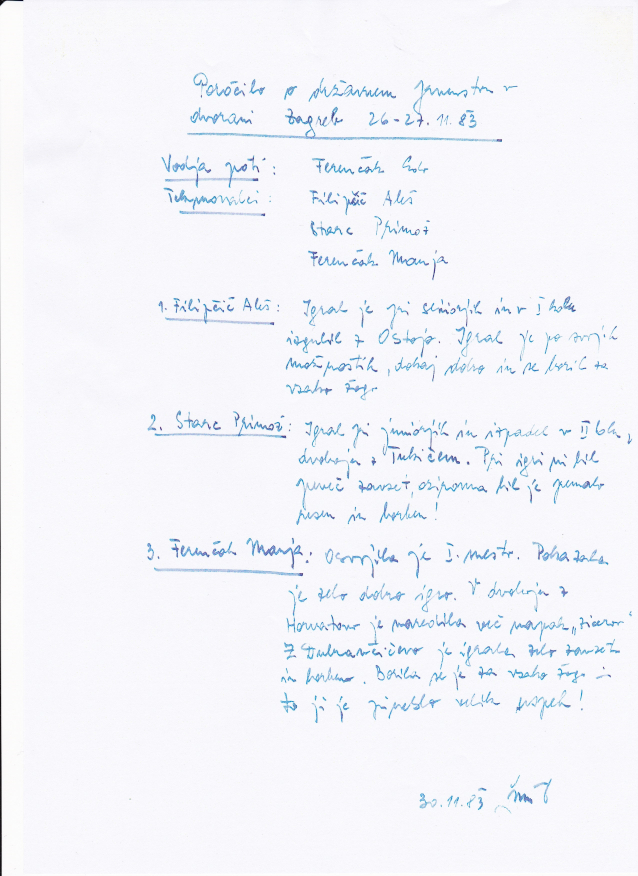 Poročilo o državnem prvenstvu v
dvorani Zagreb 26-27.11.83
Vodja poti: Ferenčak
Tekmovalci: Filipčič Aleš
Starc Primož
Ferenčak Manja
1. Filipčič Aleš: Igral je pri seniorjih in v I kolu
izgubil z Ostoja. Igral je po svojih
možnostih, dokaj dobro in se boril za
vsako žogo
2. Starc Primož: Igral pri juniorjih in izpadel v II kolu,
dvoboju z Tubičem. Pri igri ni bil
preveč zavzet, oziroma bil je premalo
resen in borben!
3. Ferenčak Manja: Osvojila je I. mesto. Pokazala
je zelo dobro igro. V dvoboju z
Horvatovo je naredila več napak „zicerov“
Z je igrala zelo zavzeto
in borbeno. Borila se je za vsako žogo in
to ji je prineslo velik uspeh!
30.11.83